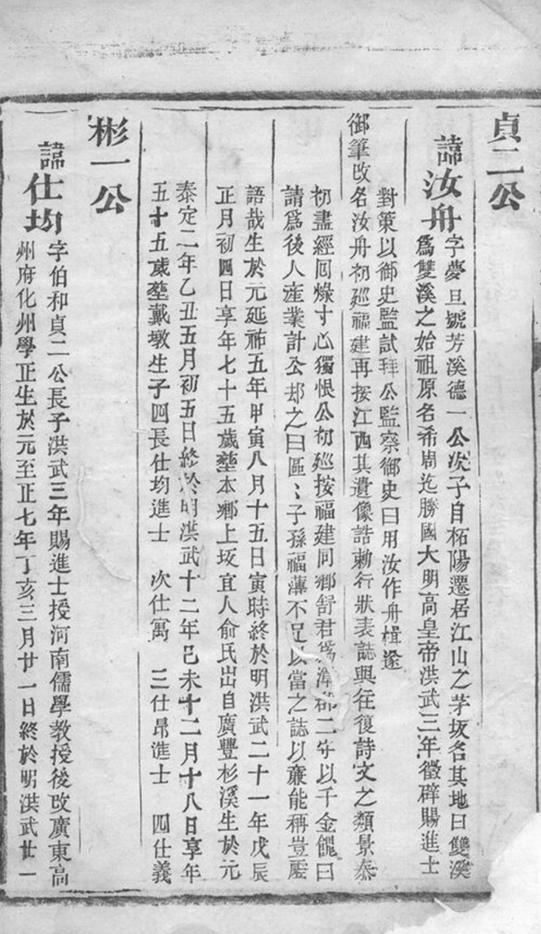 貞二公
諱汝舟
字夢旦號芳溪德一公次子自柘陽遷居江山之茅坂名其地曰雙溪
爲雙溪之始祖原名希周迄勝國大明高皇帝洪武三年徵辟賜進士
對策以御史監試拜公監察御史曰用汝作舟楫遂
御筆改名汝舟初廵福建再按江西其遺像誥勅行狀表誌與往復詩文之類景泰
初盡經回燬寸心獨恨公初廵按福建同鄉舒君爲漳郡二守以千金餽曰
請爲後人産業計公却之曰區〻子孫福薄不足以當之誌以亷能稱豈
語哉生於元延祐五年甲寅八月十五日寅時終於明洪武二十一年戊辰
正月初四日享年七十五歲塟本鄉上坂宜人俞氏出自廣豐杉溪生於元
泰定二年乙丑五月初五日終於明洪武十二年己未十二月十八日享年
五十五歲塟戴墩生子四長仕均進士　次仕寓　三仕昂進士　四仕義
彬一公
諱仕均
字伯和貞二公長子洪武三年賜進士授河南儒學教授後改廣東高
州府化州學正生於元至正七年丁亥三月廿一日終於明洪武廿一